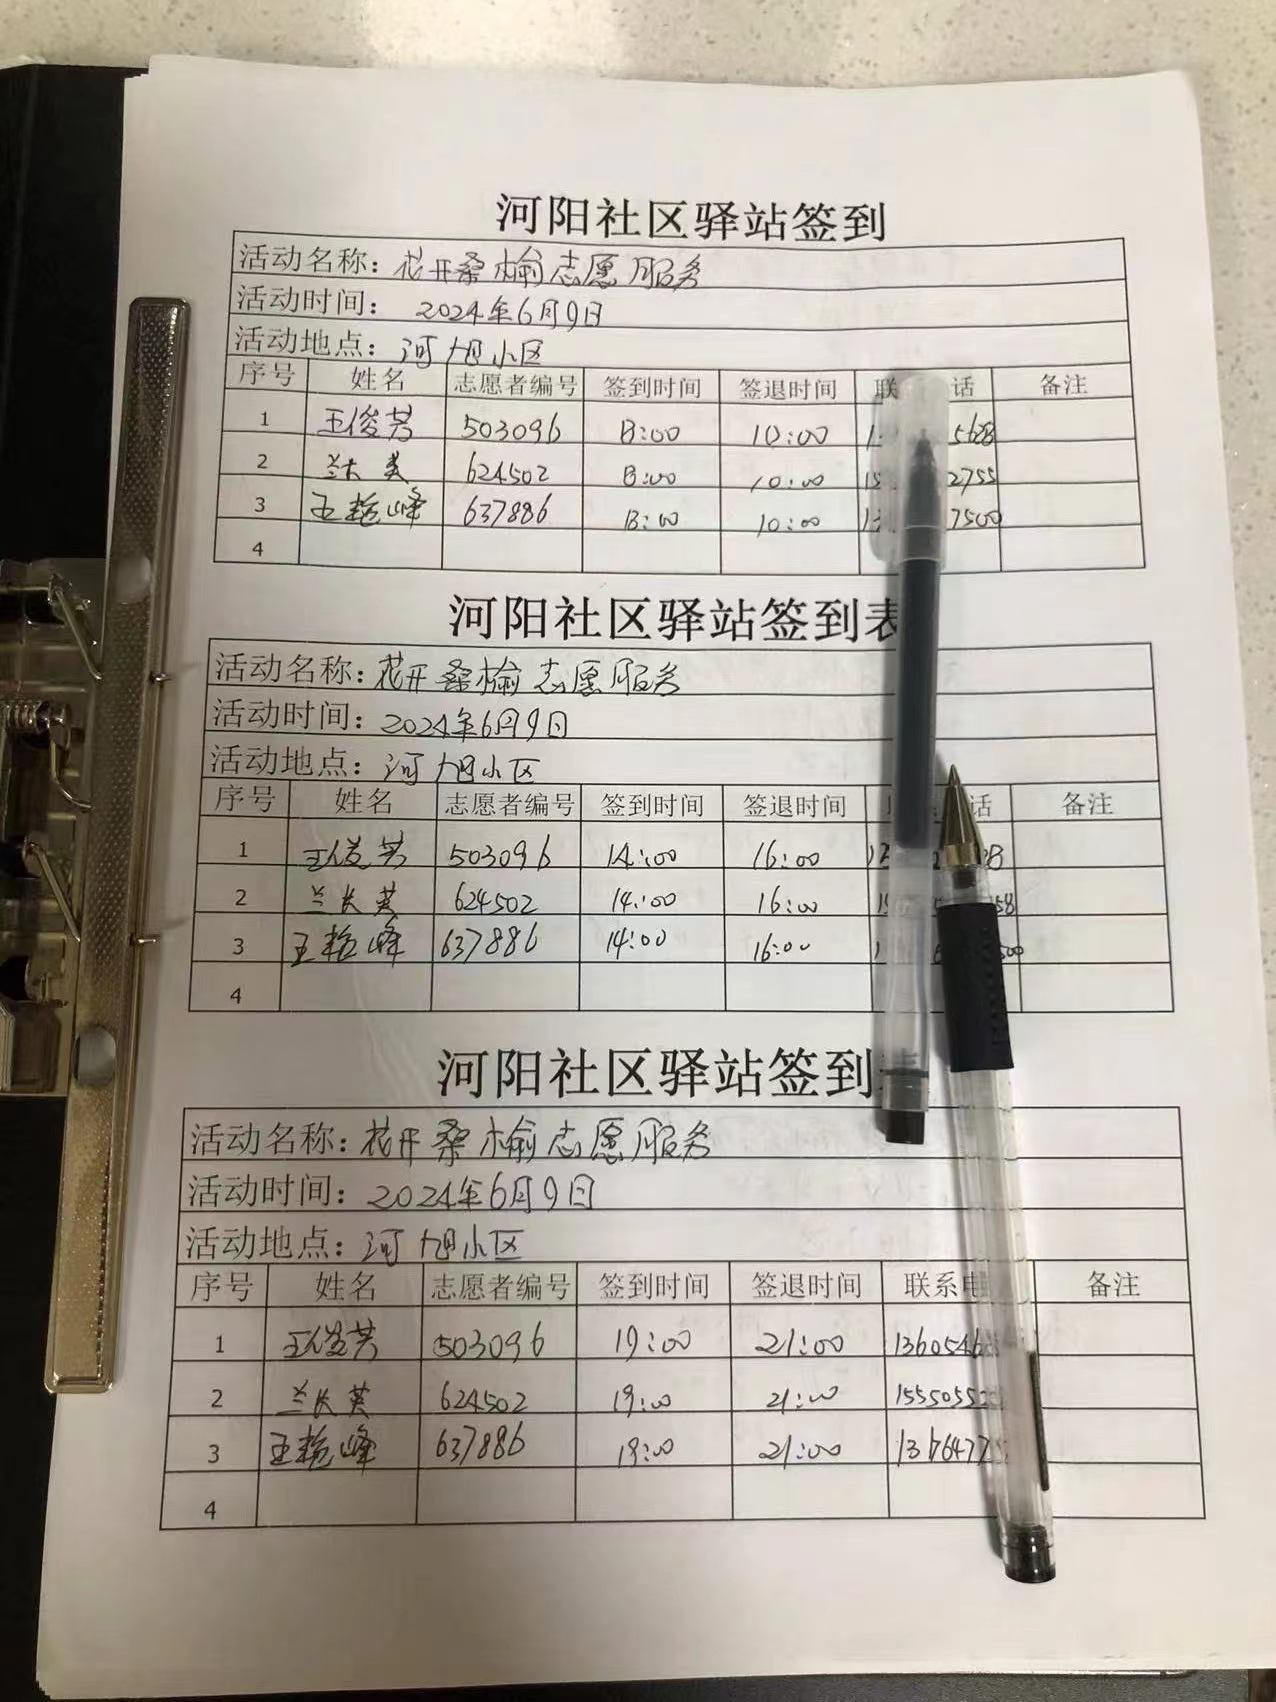 河阳社区驿站签到
活动名称：花开桑榆志愿服务
活动时间： 2024年6月9日
活动地点：河旭小区
序号 姓名 志愿者编号 签到时间 签退时间 联 话 备注
1 王俊芳 503096 8:00 10:00 5628
2 兰长英 624502 8:00 10:00 2755
3 王艳峰 637886 8:00 10:00 7500
4
河阳社区驿站签到表
活动名称：花开桑榆志愿服务
活动时间：2024年6月9日
活动地点：河旭小区
序号 姓名 志愿者编号 签到时间 签退时间 话 备注
1 王俊芳 503096 14:00 16:00
2 兰长英 624502 14:00 16:00
3 王艳峰 637886 14:00 16:00
4
河阳社区驿站签到
活动名称：花开桑榆志愿服务
活动时间：2024年6月9日
活动地点：河旭小区
序号 姓名 志愿者编号 签到时间 签退时间 联系电 备注
1 王俊芳 503096 19:00 21:00 1360546
2 兰长英 624502 19:00 21:00 1555055
3 王艳峰 637886 19:00 21:00 1376477
4